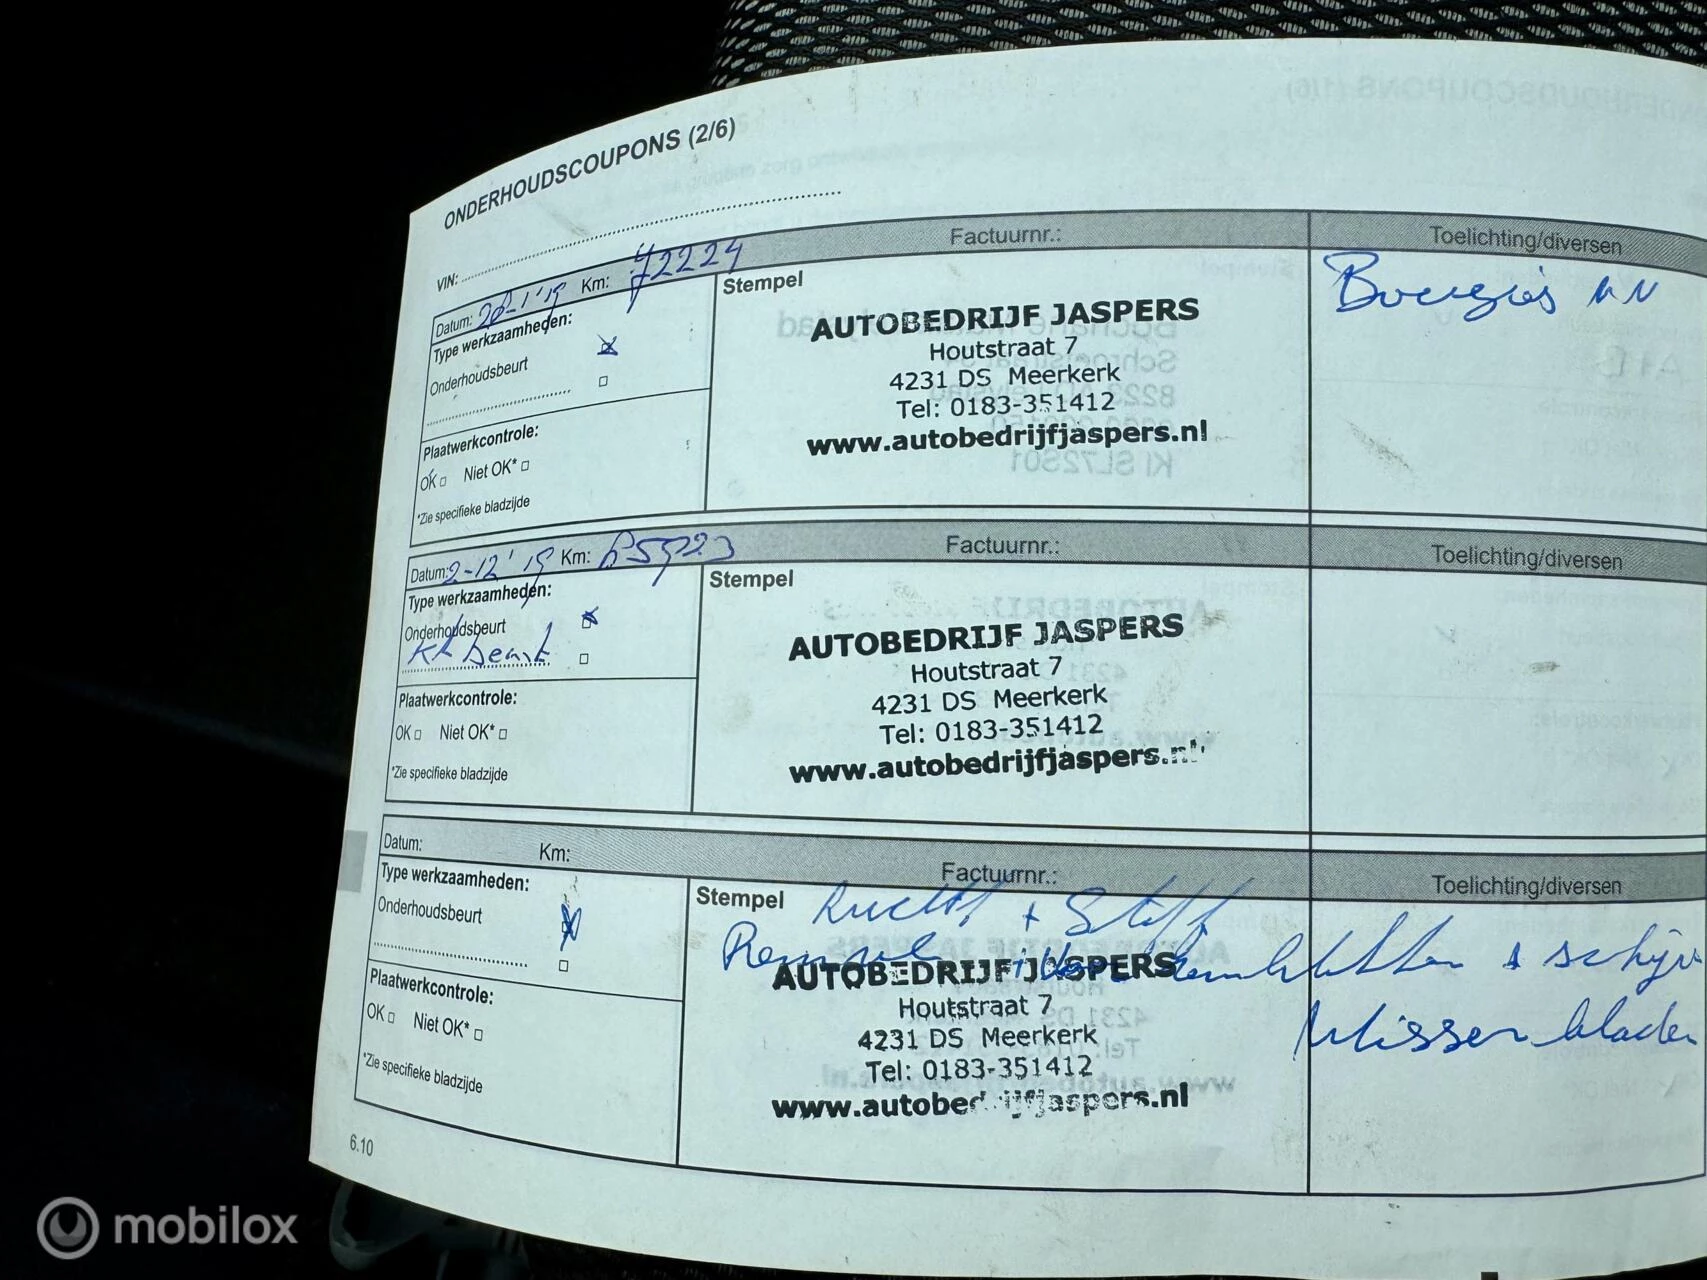 ONDERHOUDSCOUPONS (2/6)
VIN:
Datum: 28-1'19 Km: 72224 Factuurnr.: Toelichting/diversen
Type werkzaamheden:
Onderhoudsbeurt
Plaatwerkcontrole:
OK Niet OK*
*Zie specifieke bladzijde
Stempel
AUTOBEDRIJF JASPERS
Houtstraat 7
4231 DS Meerkerk
Tel: 0183-351412
www.autobedrijfjaspers.nl
Bougies
Datum: 2-12'19 Km: Factuurnr.: Toelichting/diversen
Type werkzaamheden:
Onderhoudsbeurt
Plaatwerkcontrole:
OK Niet OK*
*Zie specifieke bladzijde
Stempel
AUTOBEDRIJF JASPERS
Houtstraat 7
4231 DS Meerkerk
Tel: 0183-351412
www.autobedrijfjaspers.nl
Datum: Km: Factuurnr.: Toelichting/diversen
Type werkzaamheden:
Onderhoudsbeurt
Plaatwerkcontrole:
OK Niet OK*
*Zie specifieke bladzijde
Stempel
+ schijv
Wisser bladen
AUTOBEDRIJF JASPERS
Houtstraat 7
4231 DS Meerkerk
Tel: 0183-351412
www.autobedrijfjaspers.nl
6.10
mobilox